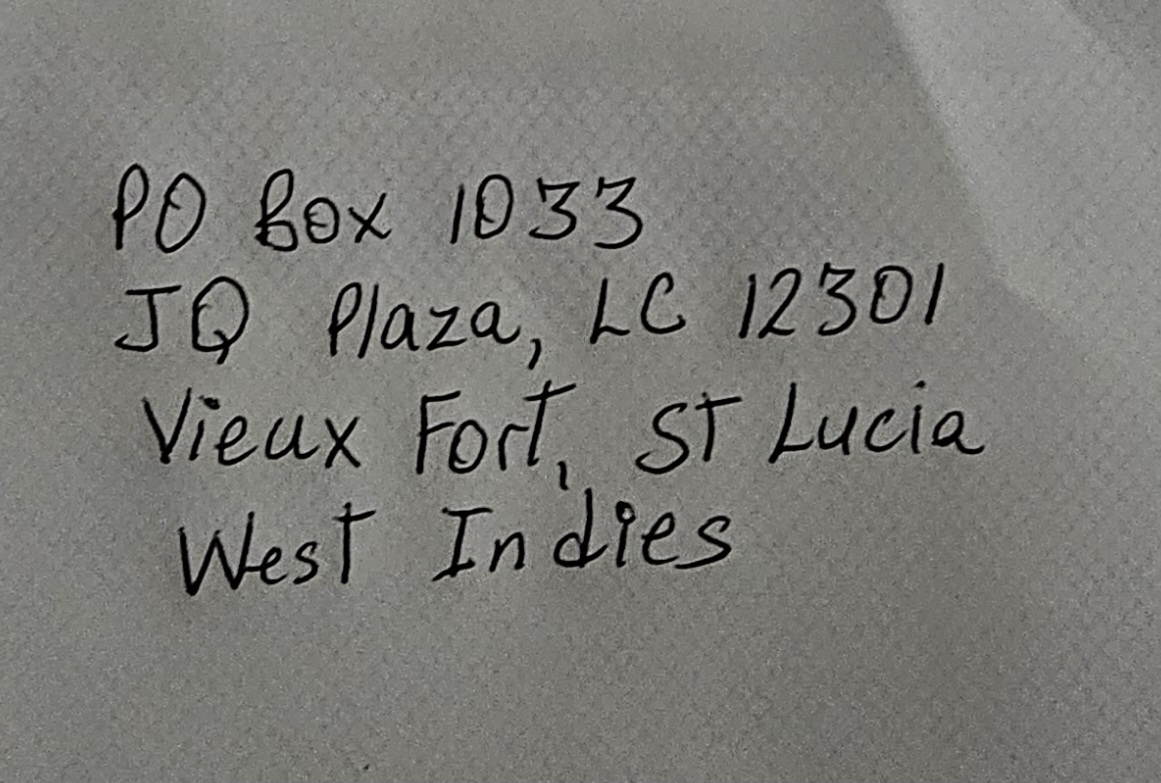 PO Box 1033
JQ Plaza, LC 12301
Vieux Fort, ST Lucia
West Indies